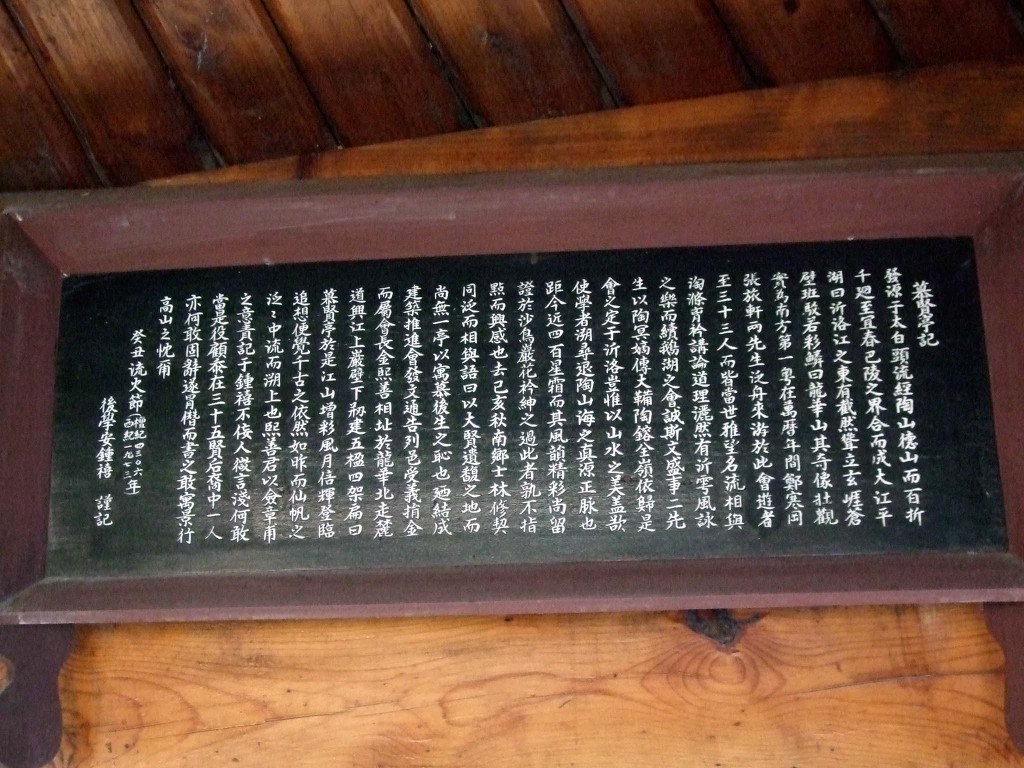 慕賢亭記
發源于太白頭流經陶山德山而百折
千廻至宜春己陵之界合而成大江平
湖曰沂洛江之東有截然聳立玄崖蒼
壁班駁若彩鱗曰龍華山其奇像壯觀
實爲南方第一勇在萬曆年間鄭寒岡
張旅軒兩先生泛舟來游於此會遊者
至三十三人而皆當世雅望名流相與
淘滌胷衿講論道理灑然有沂雩風詠
之樂而續鵝湖之會誠斯文盛事二先
生以陶冥嫡傳大鞴陶鎔全嶺依歸是
會之定于沂洛豈惟以山水之美盖欲
使學者溯尋退陶山海之眞源正脉也
距今近四百星霜而其風韻精彩尚留
證於沙鳥巖花衿紳之過此者孰不指
點而興感也去己亥秋南鄉士林修契
同泛而相與語曰以大賢遺馥之地而
尚無一亭以寓慕後生之恥也廼結成
建築推進會發文通告列邑受義捐金
而屬會長金熙善相址於龍華北走麓
道興江上巖壁下剏建五楹四架扁曰
慕賢亭於是江山增彩風月倍輝登臨
追想便覺千古之依然如昨而仙帆之
泛泛中流而溯上也熙善君以僉章甫
之意責記于鍾禧不佞人微言淺何敢
當是役顧忝在三十五賢后裔中一人
亦何敢固辭遂冒僭而書之敢寓景行
高山之忱甫
癸丑流火節檀紀四三〇六年
西紀一九七三年
後學安鍾禧 謹記